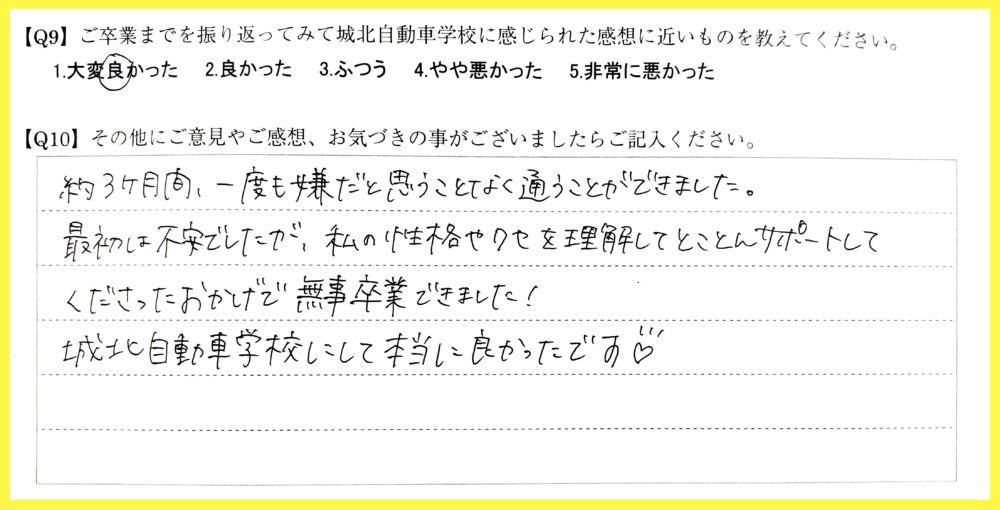 【Q9】ご卒業までを振り返ってみて城北自動車学校に感じられた感想に近いものを教えてください。
1.大変良かった 2.良かった 3.ふつう 4.やや悪かった 5.非常に悪かった
【Q10】その他にご意見やご感想、お気づきの事がございましたらご記入ください。
約3ケ月間、一度も嫌だと思うことなく通うことができました。
最初は不安でしたが、私の性格やクセを理解してとことんサポートして
くださったおかげで無事卒業できました！
城北自動車学校にして本当に良かったです♡